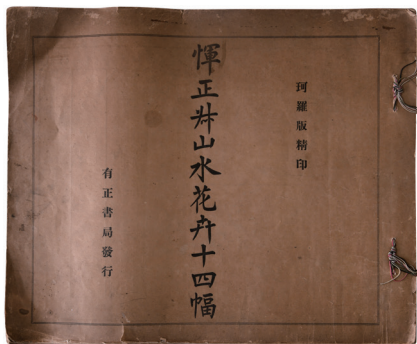 珂羅版精印
惲正叔山水花卉十四幅
有正書局發行